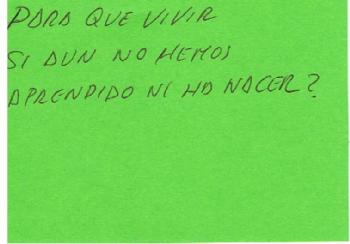 PARA QUE VIVIR
SI AUN NO HEMOS
APRENDIDO NI HA NACER?